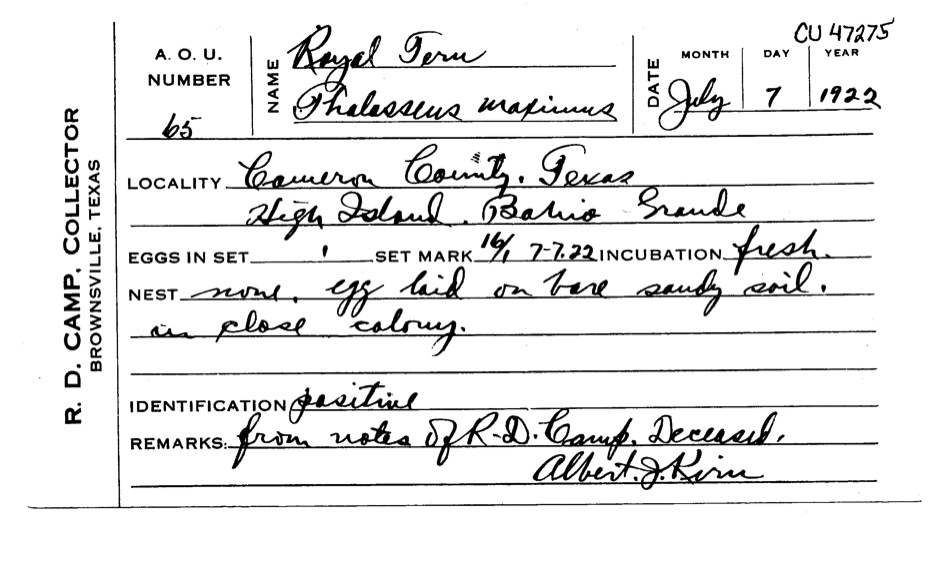 CU 47275
R. D. CAMP, COLLECTOR
BROWNSVILLE, TEXAS
A. O. U. NUMBER 65
NAME Royal Tern
Thalasseus maximus
DATE MONTH DAY YEAR
July 7 1922
LOCALITY Cameron County. Texas
High Island. Bahio Grande
EGGS IN SET 1 SET MARK 16/1 7-7.22 INCUBATION fresh.
NEST none. egg laid on bare sandy soil.
in close colony.
IDENTIFICATION positive
REMARKS: from notes of R.D. Camp. Deceased.
Albert. J. Kirn